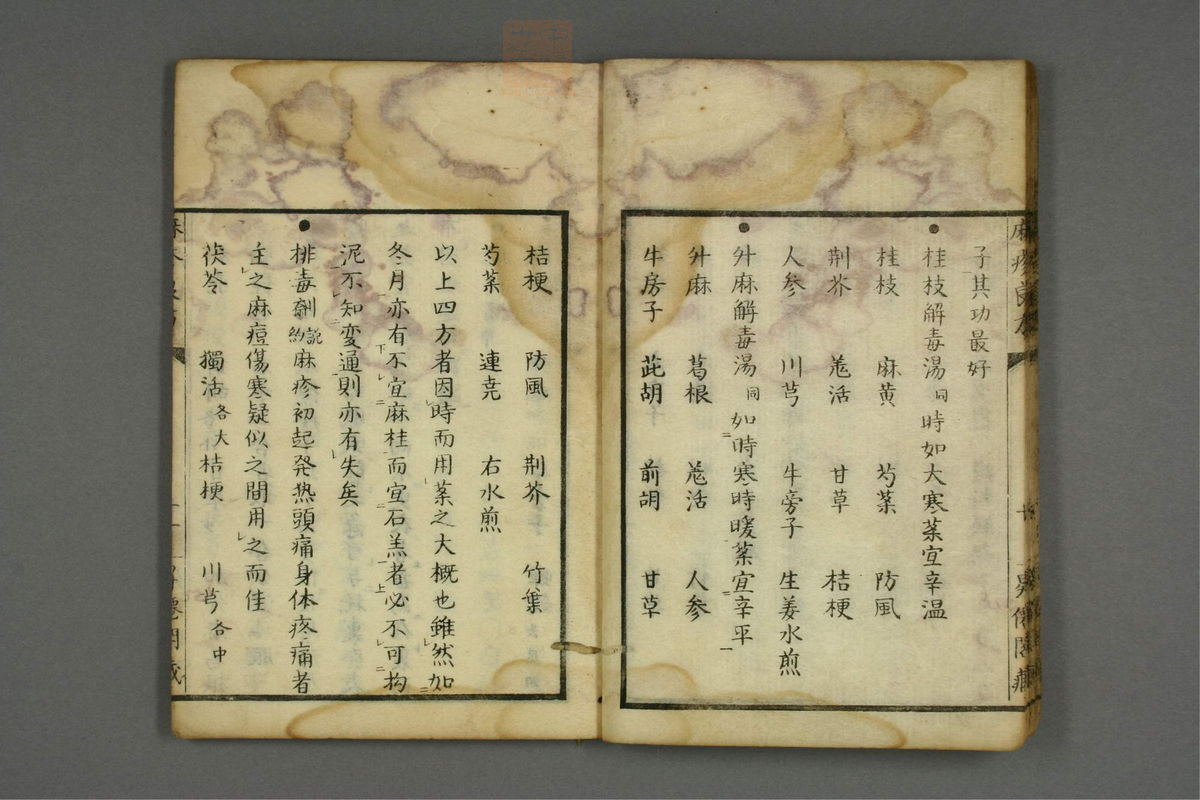 子其功最好
●桂枝解毒湯同時如大寒薬宜辛温
桂枝　麻黄　芍薬　防風
荆芥　羗活　甘草　桔梗
人参　川芎　牛旁子　生姜水煎
●升麻解毒湯同如時寒時暖薬宜辛平
升麻　葛根　羗活　人参
牛房子　茈胡　前胡　甘草
桔梗　防風　荆芥　竹葉
芍薬　連堯　右水煎
以上四方者因時而用薬之大概也雖然如
冬月亦有不宜麻桂而宜石羔者必不可拘
泥不知変通則亦有失矣
●排毒劑約説麻疹初起発热頭痛身体疼痛者
主之麻痘傷寒疑似之間用之而佳
茯苓　獨活各大　桔梗　川芎各中